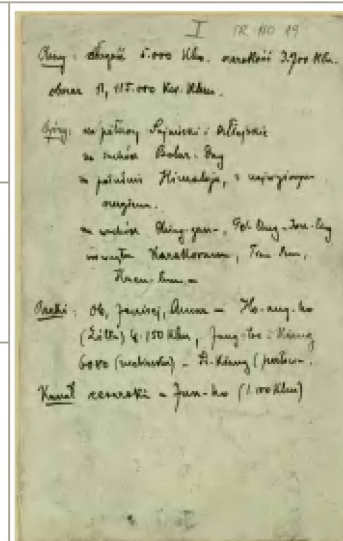 I
Chiny: długość 5.000 Klm. szerokość 3.700 Klm.
obszar 11,115.000 Kw. Klm.
Góry: na północy Sajański i Ałtajskie
na zachód Bolor-Dag
na południu Himalaja, z najwyższym
na wschód
Karakorum, Tian
Kuen-lun
Rzeki: Ob, Jenisej, Amur – Ho-ang-ho
(Żółta) 4.150 Klm, Jang-tse-Kiang
6080 (niebieska) – Si-Kiang (perłow.
Kanał cesarski – Jun-ho (1.100 Klm)